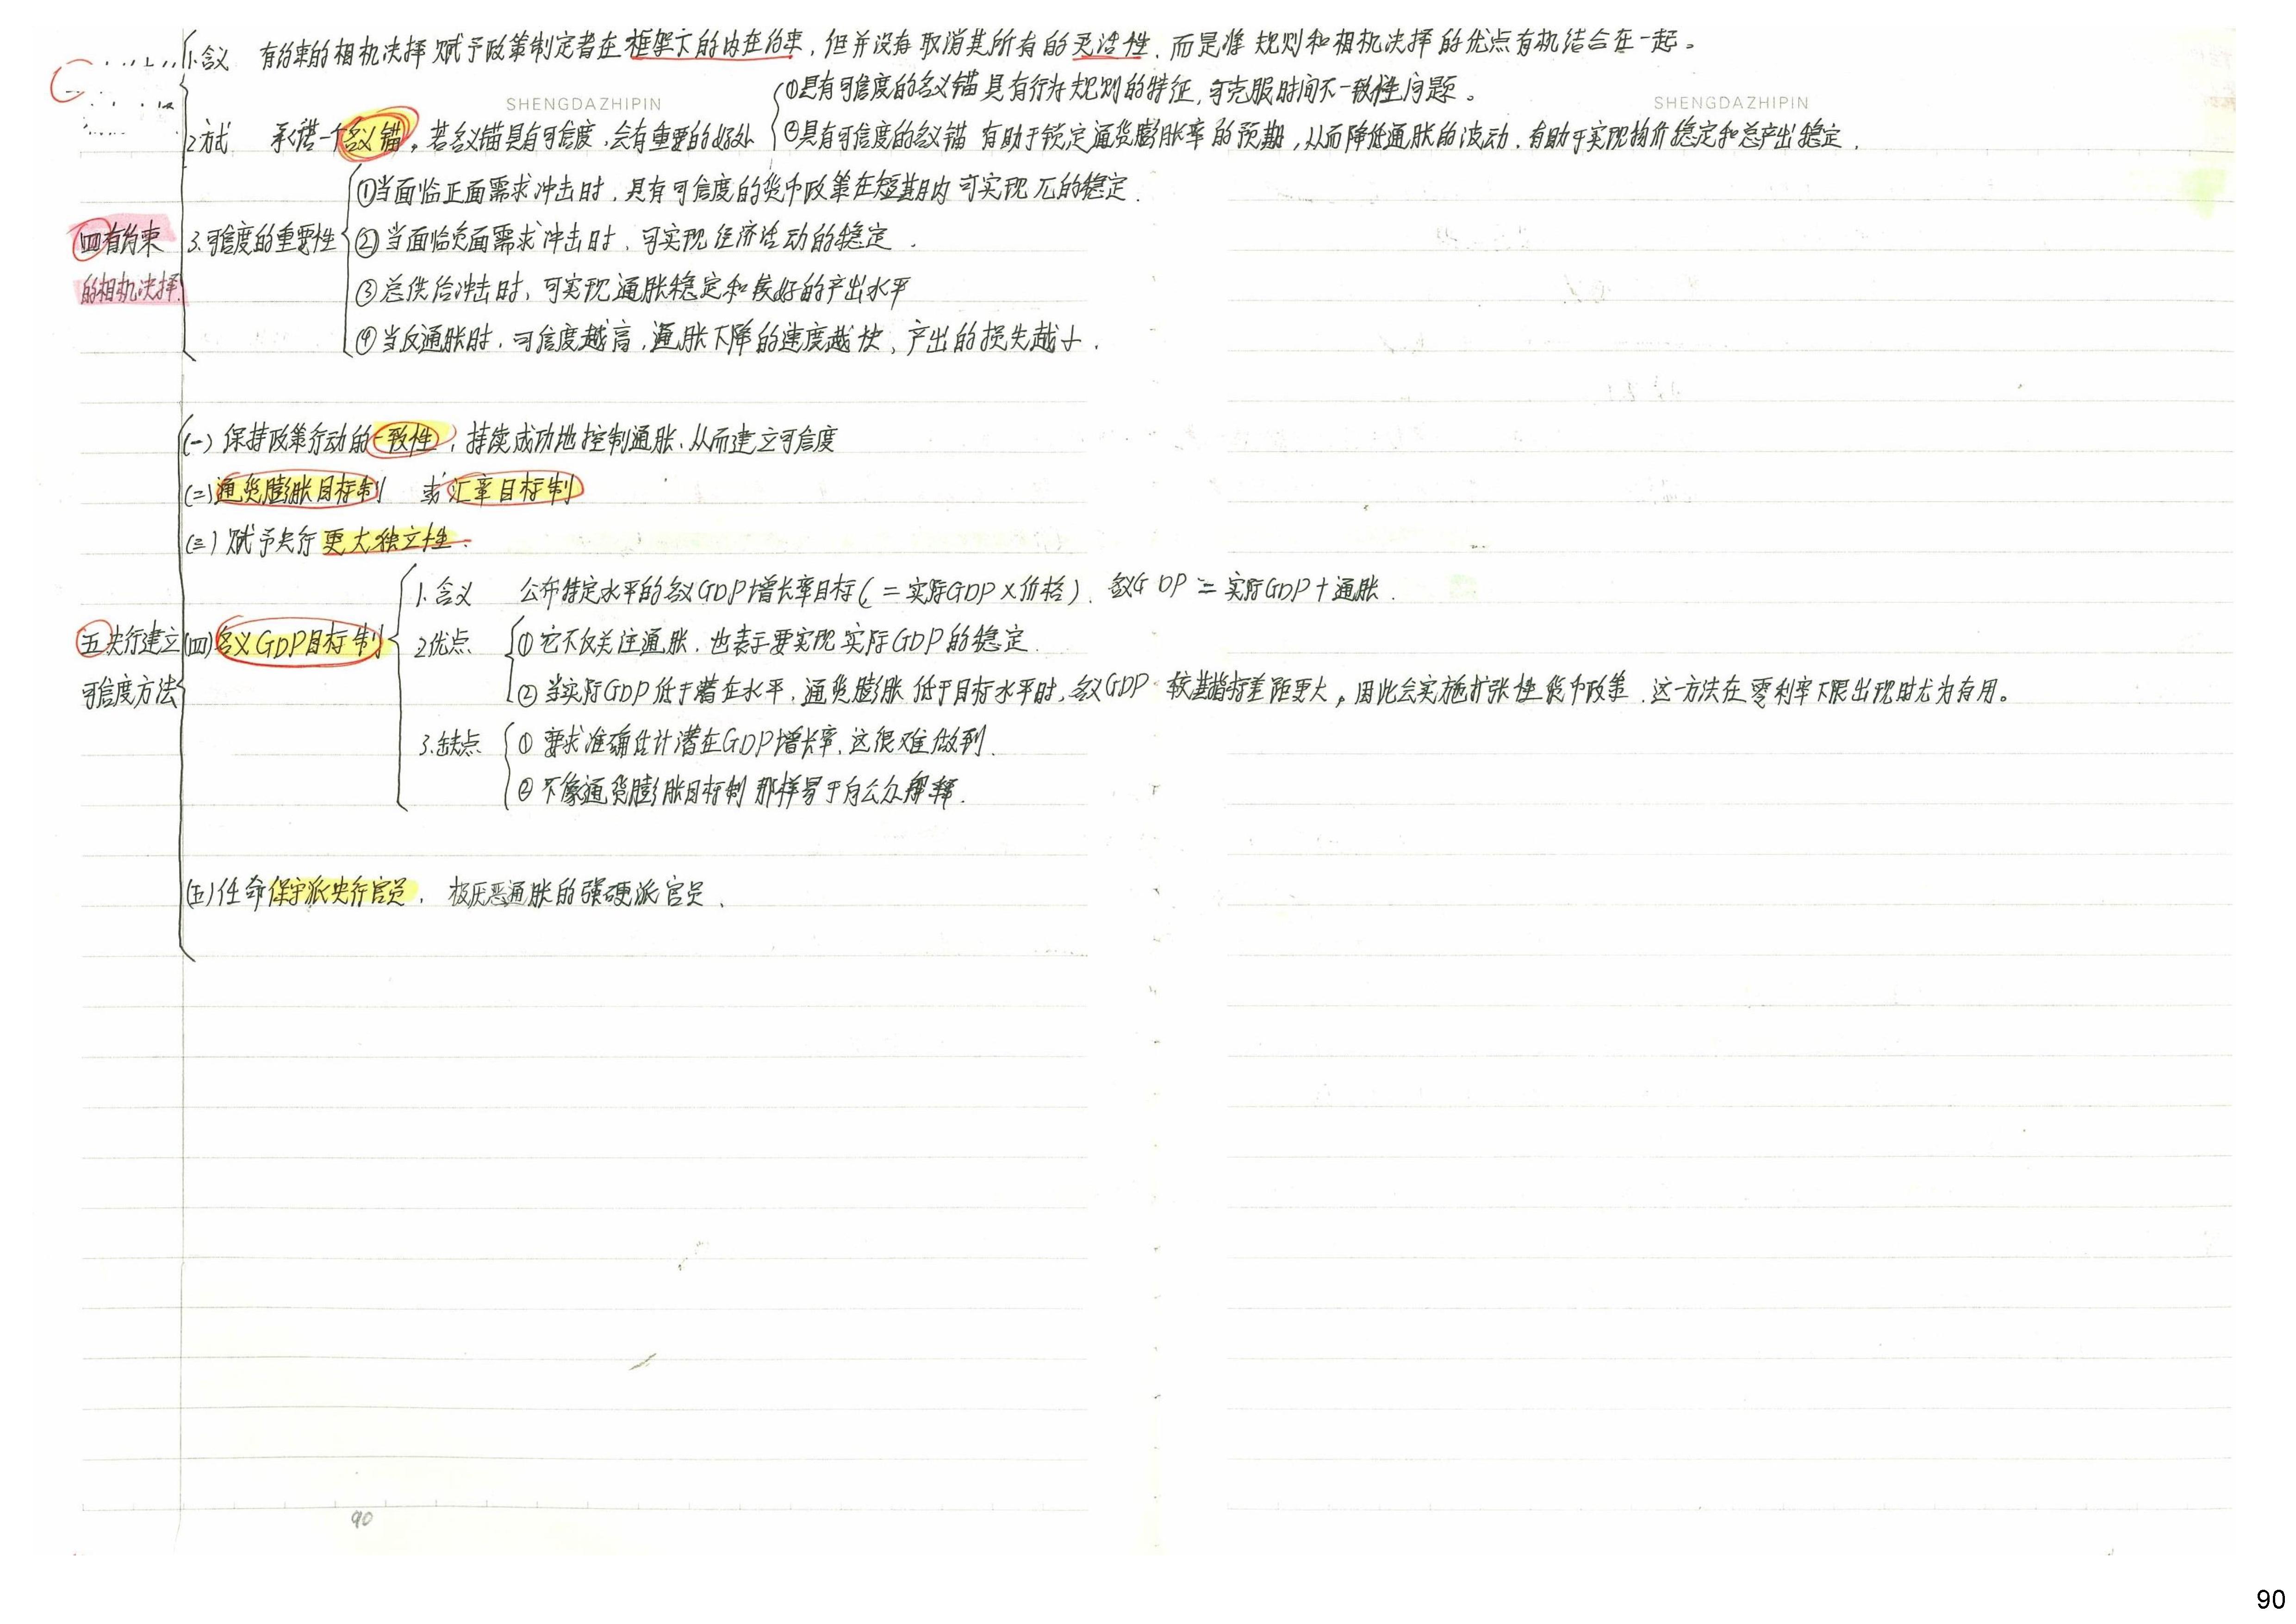 1.含义 有约束的相机决择 赋予政策制定者在框架下的内在约束，但并没有取消其所有的灵活性，而是将规则和相机决择的优点有机结合在一起。
SHENGDAZHIPIN
SHENGDAZHIPIN
2.方式 承诺一个名义锚。若名义锚具有可信度，会有重要的好处
①具有可信度的名义锚具有行为规则的特征，可克服时间不一致性问题。
②具有可信度的名义锚 有助于锁定通货膨胀率的预期，从而降低通胀的波动，有助于实现物价稳定和总产出稳定.
四有约束
的相机决择
3.可信度的重要性
①当面临正面需求冲击时，具有可信度的货币政策在短期内可实现π的稳定.
②当面临负面需求冲击时，可实现经济活动的稳定.
③总供给冲击时，可实现通胀稳定和较好的产出水平
④当反通胀时，可信度越高，通胀下降的速度越快，产出的损失越小.
五央行建立
可信度方法
(一)保持政策行动的一致性，持续成功地控制通胀、从而建立可信度
(二)通货膨胀目标制 或 汇率目标制
(三)赋予央行更大独立性.
(四)名义GDP目标制
1.含义 公布特定水平的名义GDP增长率目标(=实际GDP×价格)、名义GDP=实际GDP+通胀.
2.优点 ①它不仅关注通胀，也表示要实现实际GDP的稳定.
②当实际GDP低于潜在水平，通货膨胀低于目标水平时，名义GDP较其指标差距更大。因此会实施扩张性货币政策.这一方法在零利率下限出现时尤为有用。
3.缺点 ①要求准确估计潜在GDP增长率，这很难做到.
②不像通货膨胀目标制那样易于向公众解释.
(五)任命保守派央行官员， 极厌恶通胀的强硬派官员.
90
90